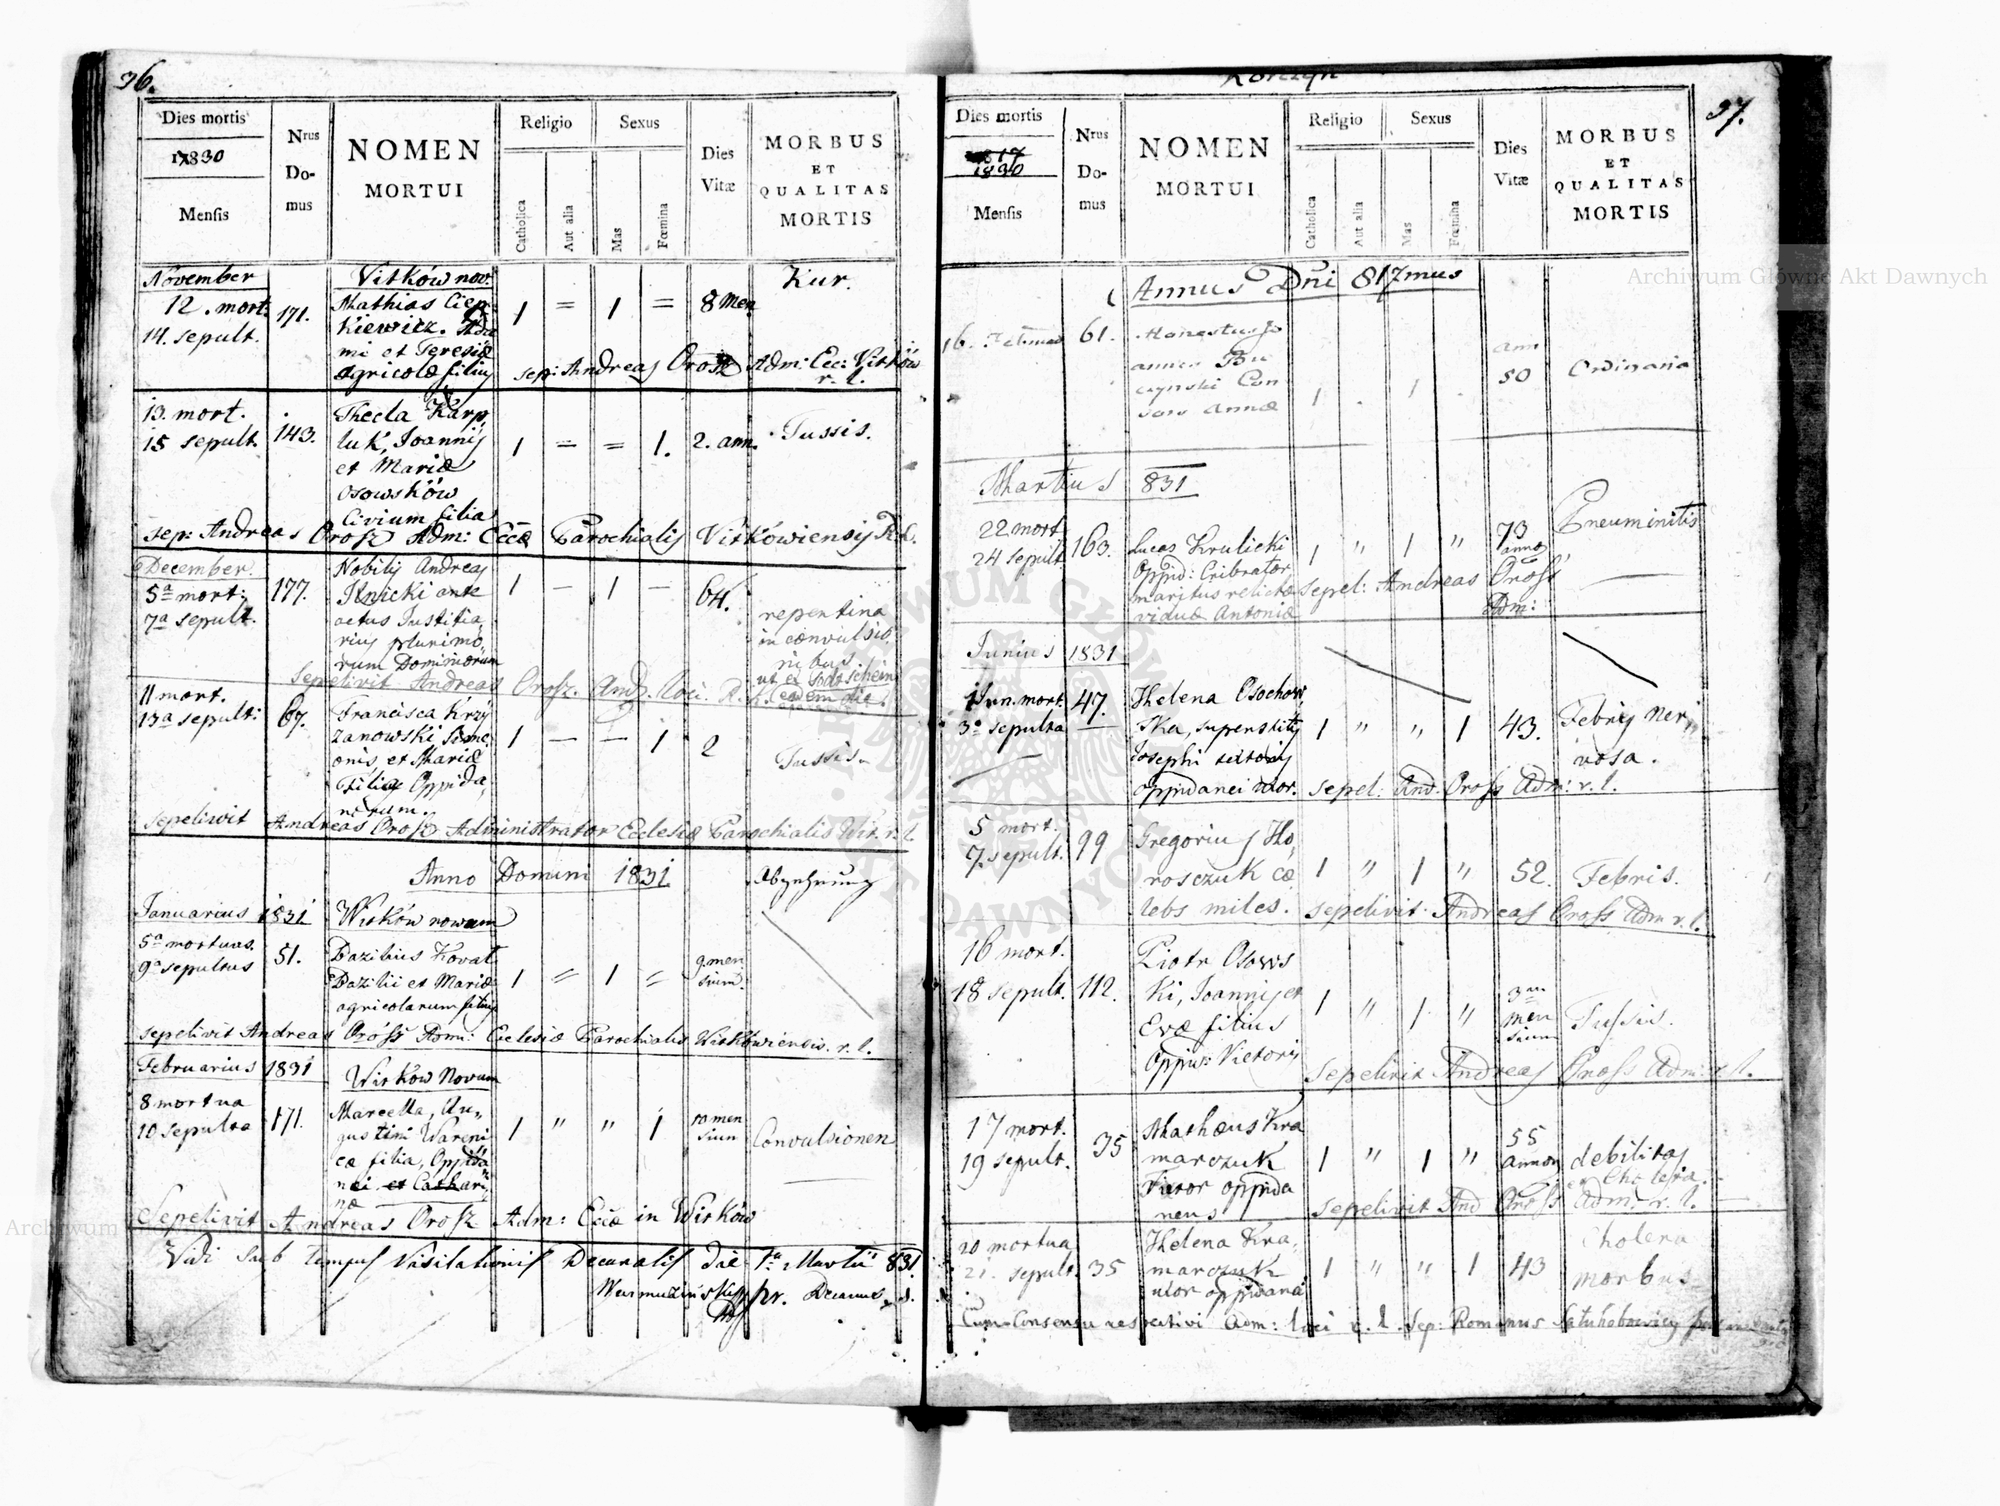 36.
Dies mortis
1830
Mensis
Nrus Domus
NOMEN
MORTUI
Religio
Catholica
Aut alia
Sexus
Mas
Fœmina
Dies Vitæ
MORBUS
ET
QUALITAS
MORTIS
November
Vitków nov.
Kur.
12. mort. 171. Mathias Ciep-
14. sepult. kiewicz. Ada
mi et Teresiæ
agricolæ filiuș
1 = 1 = 8 Men
sep: Andreas Orosz Adm: Ecc: Vitków
r. l.
13. mort. 143. Thecla Karp
15 sepult. luk, Joannis
et Mariæ
Osowsków
Civium filia
1 = = 1. 2. ann. Tussis.
sep: Andreas Orosz Adm: Eccæ Parochialis Vitkowiensis R.L.
December.
5ª mort. 177. Nobilis Andreas
7ª sepult. Ilnicki ante
actus Justitia,
rius plurimo,
rum Dominiorum
1 – 1 – 64.
repentina
in convulsio,
nibus
Sepelivit Andreas Orosz.
11 mort. 67. Francisca Krzy
13ª sepult: zanowski Sime,
onis, et Mariæ
Filia Oppida,
norum.
1 – – 1 2 Tussis.
Sepelivit Andreas Orosz Administrator Eclesiæ Parochialis Wit. r. l.
Anno Domini 1831
Januarius 1831 Witków novum
5ª mortuus. 51. Bazilius Kovat
9ª sepultus Bazilii et Mariæ
agricolarum filius
1 = 1 = 9. men
sium.
sepelivit Andreas Orosz Adm: Eclesiæ Parochialis Witkowiensis. r. l.
Februarius 1831 Witków Novum
8 mortua 171. Marcella, Au,
10 sepulta gustini Wareni
cæ filia, Oppida
nei et Cathari,
næ
1 " " 1 10 men
sium Convulsionen
Sepelivit Andreas Orosz Adm: Eccæ in Witków
Vidi sub tempus Visitationis Decanalis die 1ª Martii 831.
Decanus
37.
Dies mortis
1817
1830
Mensis
Nrus Domus
NOMEN
MORTUI
Religio
Catholica
Aut alia
Sexus
Mas
Fœmina
Dies Vitæ
MORBUS
ET
QUALITAS
MORTIS
Annus Dni 817mus
16. 61. Honestus Jo
annes
Con
sors Annæ
1 . 1 . ann
50 Ordinaria
Martius 831
22 mort. 163. Lucas Krulicki
24 sepult. Oppid: Cribrator
maritus relictæ
viduæ Antoniæ
1 " 1 " 73
annos Pneuminitis
sepel: Andreas Orosz
Adm:
Junius 1831
1 Jun. mort. 47. Helena Osochow,
3ª sepulta ska, superstitis
Josephi sutoris
oppidanei uxor.
1 " " 1 43. Febris ner,
vosa.
sepel: And: Orosz Adm: r. l.
5 mort. 99 Gregorius Ho,
7. sepult. rosczuk cæ
lebs miles.
1 " 1 " 52. Febris.
sepelivit Andreas Orosz Adm r. l.
16 mort.
18 sepult. 112. Piotr Osows
ki, Joannis et
Evæ filius
Oppid: Vietoris
1 " 1 " 3
men
sium Tussis.
Sepelivit Andreas Orosz Adm: r. l.
17 mort. 35 Matheus Kra
19 sepult. marczuk
Vietor oppida
neus
1 " 1 " 55
annor debilitas
Sepelivit And Orosz Adm: r. l.
20 mortua 35 Helena Kra,
21. sepult. marczuk
uxor oppidanei
1 " " 1 43 Cholera
morbus
Cum Consensu respectivi Adm: loci r. l. Sep: Romanus
Archiwum Główne Akt Dawnych